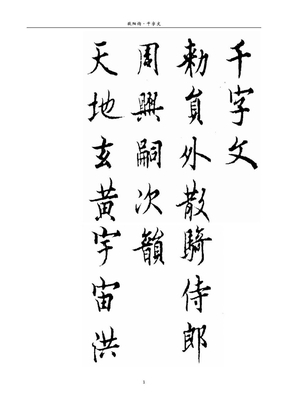 欧阳询·千字文
千字文
勅員外散騎侍郎
周興嗣次韻
天地玄黃宇宙洪
1